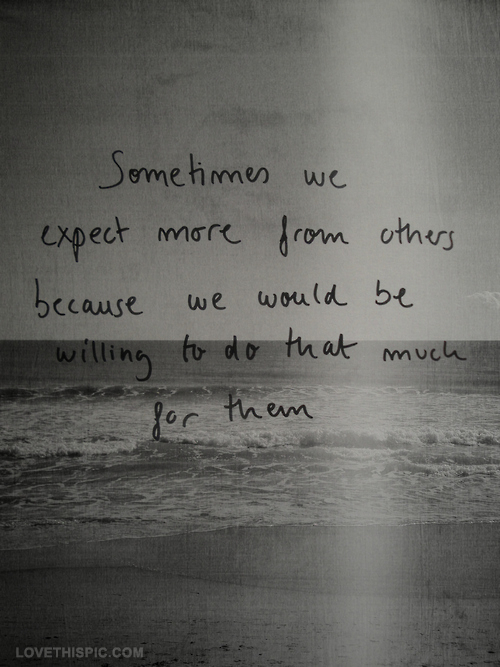 Sometimes we
expect more from others
because we would be
willing to do that much
for them
LOVETHISPIC.COM